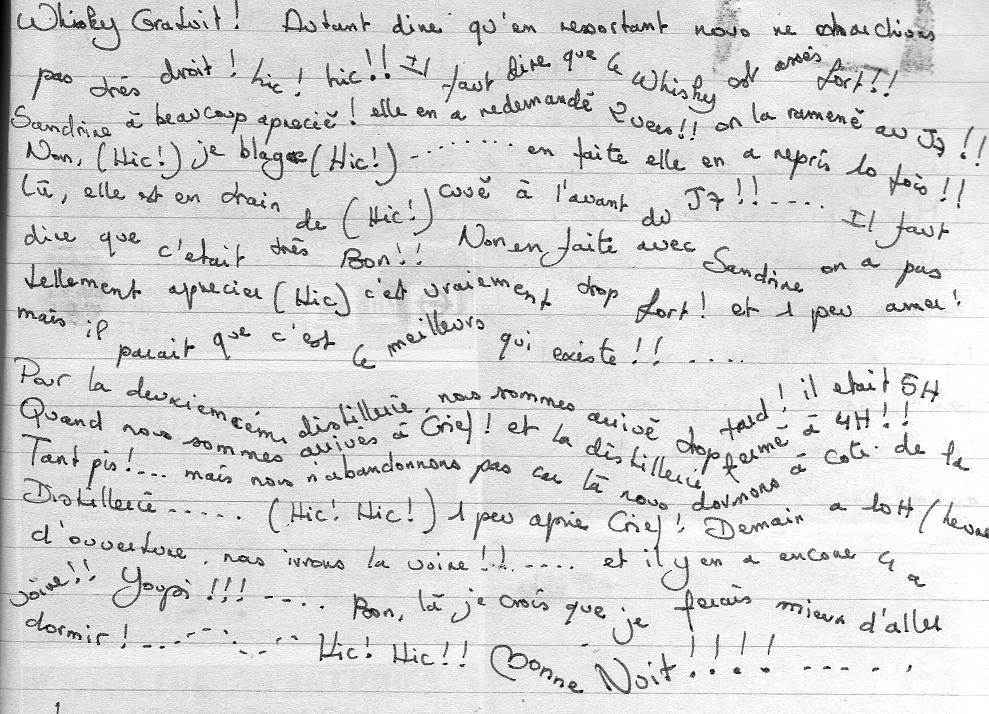 Whisky Gratuit! Autant dire qu'en ressortant nous ne marchions
pas très droit! hic! hic!! Il faut dire que le Whisky est assés fort!!
Sandrine à beaucoup aprecié! elle en a redemandé 2 verres!! on la ramené au J7!!
Non, (Hic!) je blague (Hic!) ......... en faite elle en a repris 10 fois!!
Là, elle est en train de (Hic!) cuvé à l'avant du J7!!..... Il faut
dire que c'etait très Bon!! Non en faite avec Sandrine on a pas
tellement aprecier (Hic) c'est vraiement trop fort! et 1 peu amer!
mais il parait que c'est le meilleurs qui existe!! ....
Pour la deuxiemem distillerie, nous sommes arrivé trop tard! il etait 5H
Quand nous sommes arrivés à Crief! et la distillerie fermé à 4H!!
Tant pis!... mais nous n'abandonnons pas car là nous dormons à coté de la
Distillerie..... (Hic! Hic!) 1 peu aprés Crief! Demain a 10H (heure
d'ouverture, nous irrons la voire!!..... et il y en a encore 4 a
voire!! Youpi!!!..... Bon, là je crois que je ferais mieux d'aller
dormir!............ Hic! Hic!! Bonne Nuit!!!!.....